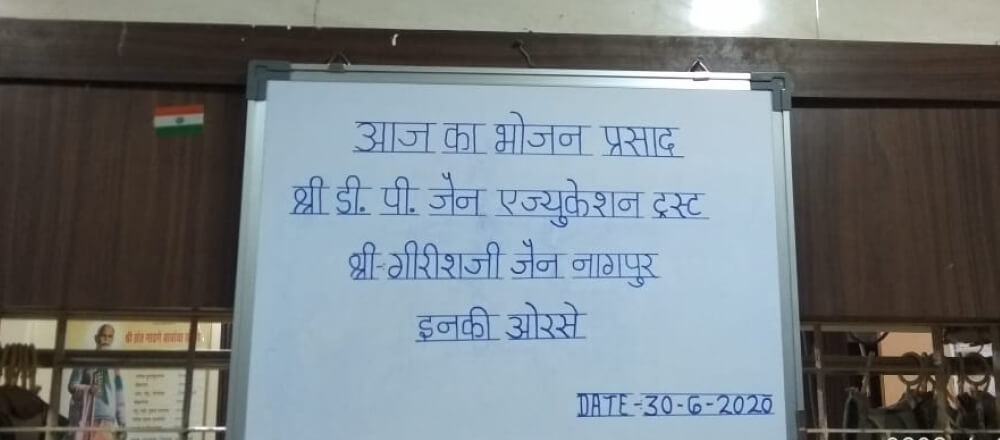 आज का भोजन प्रसाद
श्री डी. पी. जैन एज्युकेशन ट्रस्ट
श्री गीरीशजी जैन नागपुर
इनकी ओरसे
DATE-30-6-2020
श्री संत गाडगे बाबांचा